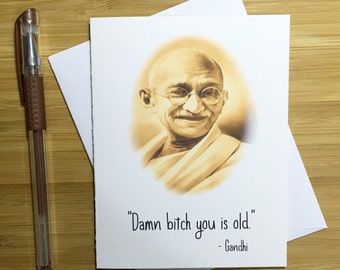 "Damn bitch you is old."
- Gandhi